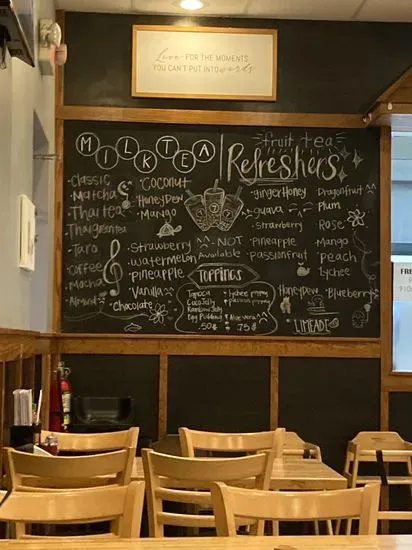 Love FOR THE MOMENTS
YOU CAN'T PUT INTO words
MILK TEA
• Classic
• Matcha
• Thai tea
• Thaigreentea
• Taro
• Coffee
• Mocha
• Almond
• Coconut
• HoneyDew
• Mango
• Strawberry
• Watermelon
• Pineapple
• Vanilla
• Chocolate
fruit tea
Refreshers
• gingerHoney
• guava
• Strawberry
• Pineapple
• Passionfruit
• Honeydew
Dragonfruit
Plum
Rose
Mango
Peach
lychee
• Blueberry
• NOT
Available
TOPPINGS
Tapioca
Coco Jelly
Rainbow Jelly
Egg Pudding
.50¢
• lychee
• passion
• Aloe vera
.75¢
LIMEADE
FRE